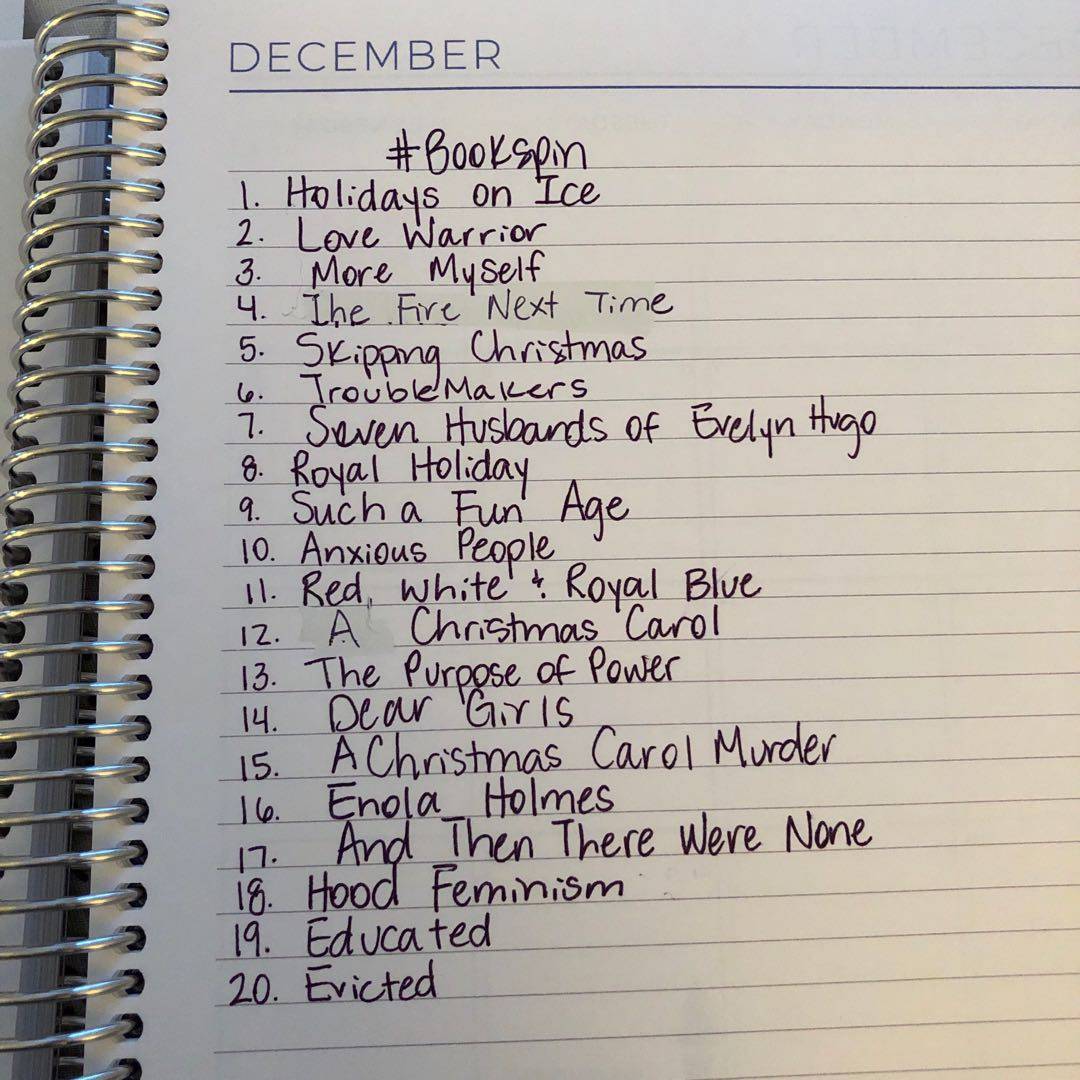 DECEMBER
#Bookspin
1. Holidays on Ice
2. Love Warrior
3. More Myself
4. The Fire Next Time
5. Skipping Christmas
6. TroubleMakers
7. Seven Husbands of Evelyn Hugo
8. Royal Holiday
9. Such a Fun Age
10. Anxious People
11. Red, White & Royal Blue
12. A Christmas Carol
13. The Purpose of Power
14. Dear Girls
15. A Christmas Carol Murder
16. Enola Holmes
17. And Then There Were None
18. Hood Feminism
19. Educated
20. Evicted